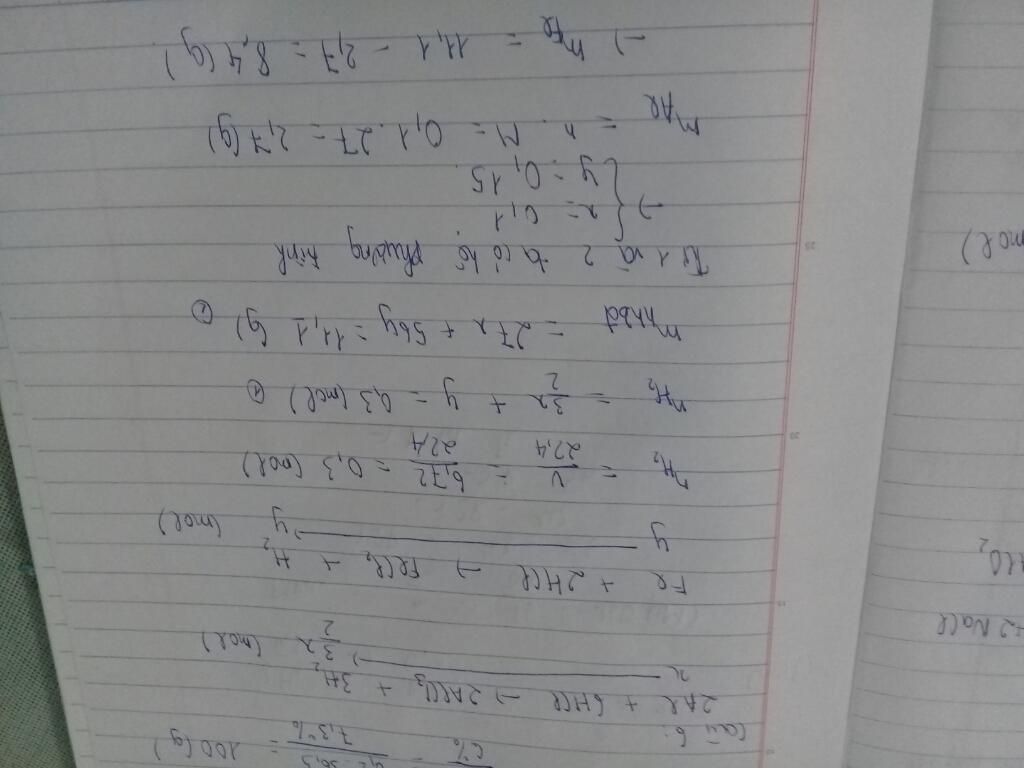 C% = 7,3% = 100 (g)
Câu 6:
2Al + 6HCl → 2AlCl₃ + 3H₂
x → 3x/2 (mol)
Fe + 2HCl → FeCl₂ + H₂
y → y (mol)
nH₂ = V/22,4 = 6,72/22,4 = 0,3 (mol)
nH₂ = 3x/2 + y = 0,3 (mol) ①
mhhbđ = 27x + 56y = 11,1 (g) ②
Từ 1 và 2 ta có hệ phương trình
→ { x = 0,1
y = 0,15.
mAl = n . M = 0,1 . 27 = 2,7 (g)
→ mFe = 11,1 - 2,7 = 8,4 (g)
+2NaCl
mol)